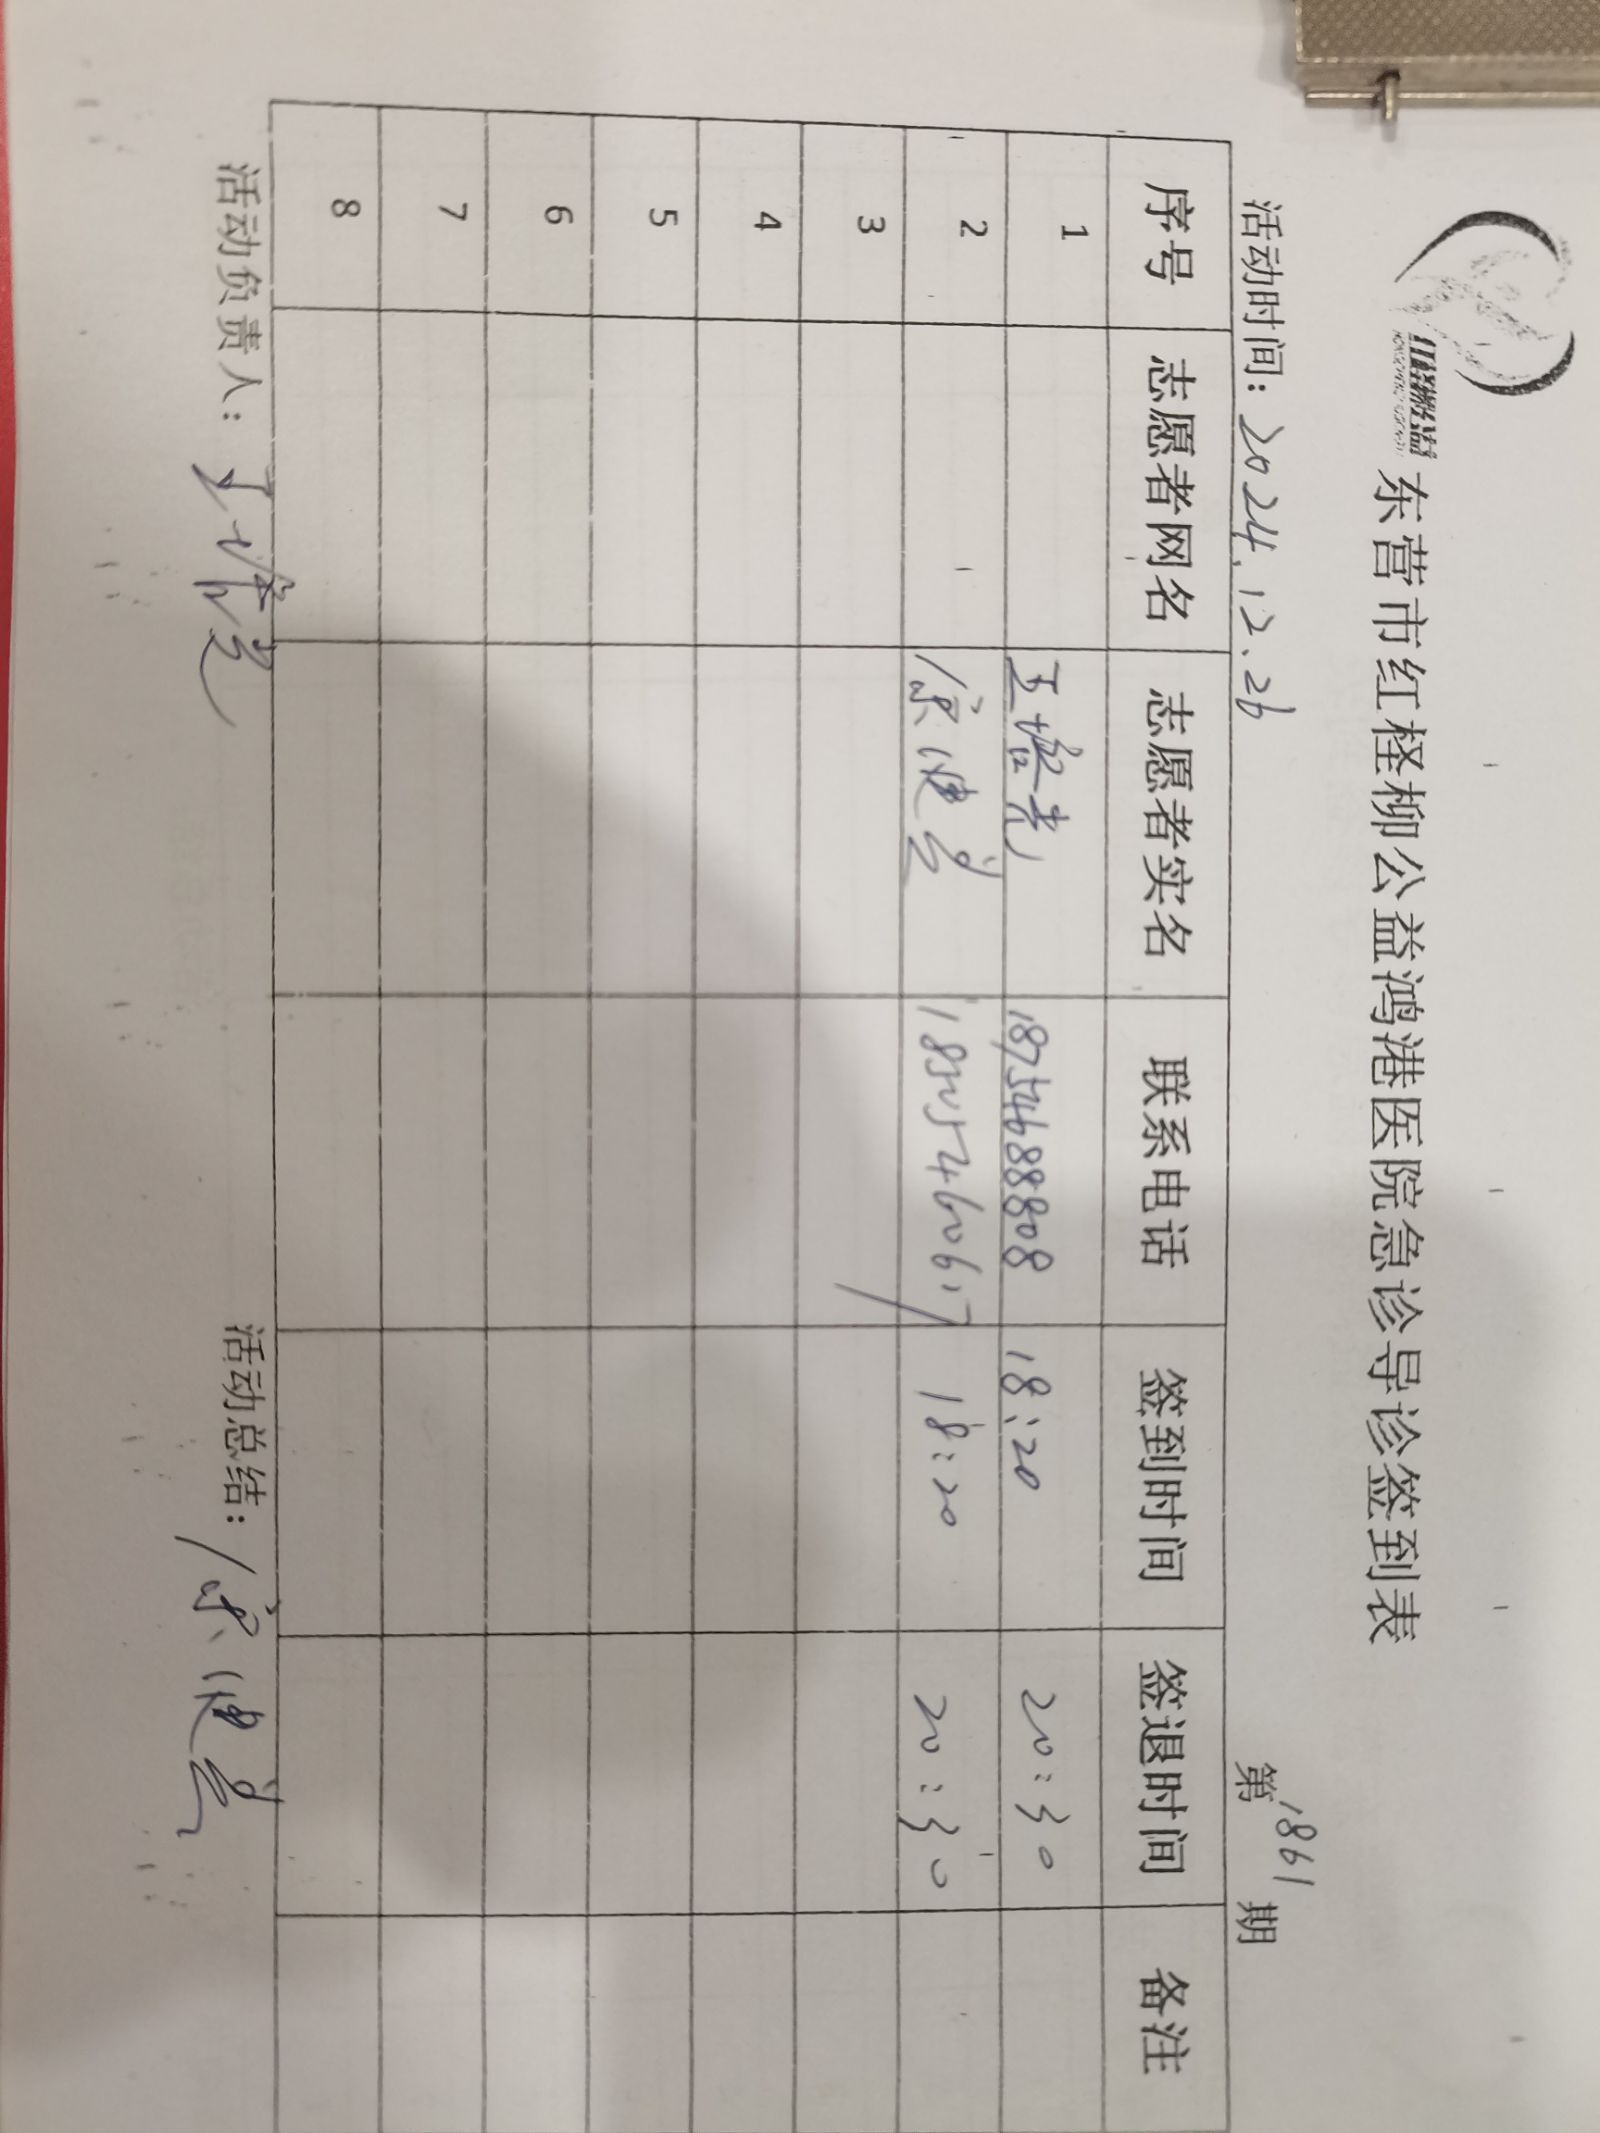 东营市红柽柳公益鸿港医院急诊导诊签到表
活动时间：2024.12.26 第1861期
序号 志愿者网名 志愿者实名 联系电话 签到时间 签退时间 备注
1 18754688808 18:20 20:30
2 18:20 20:30
3
4
5
6
7
8
活动负责人： 活动总结：